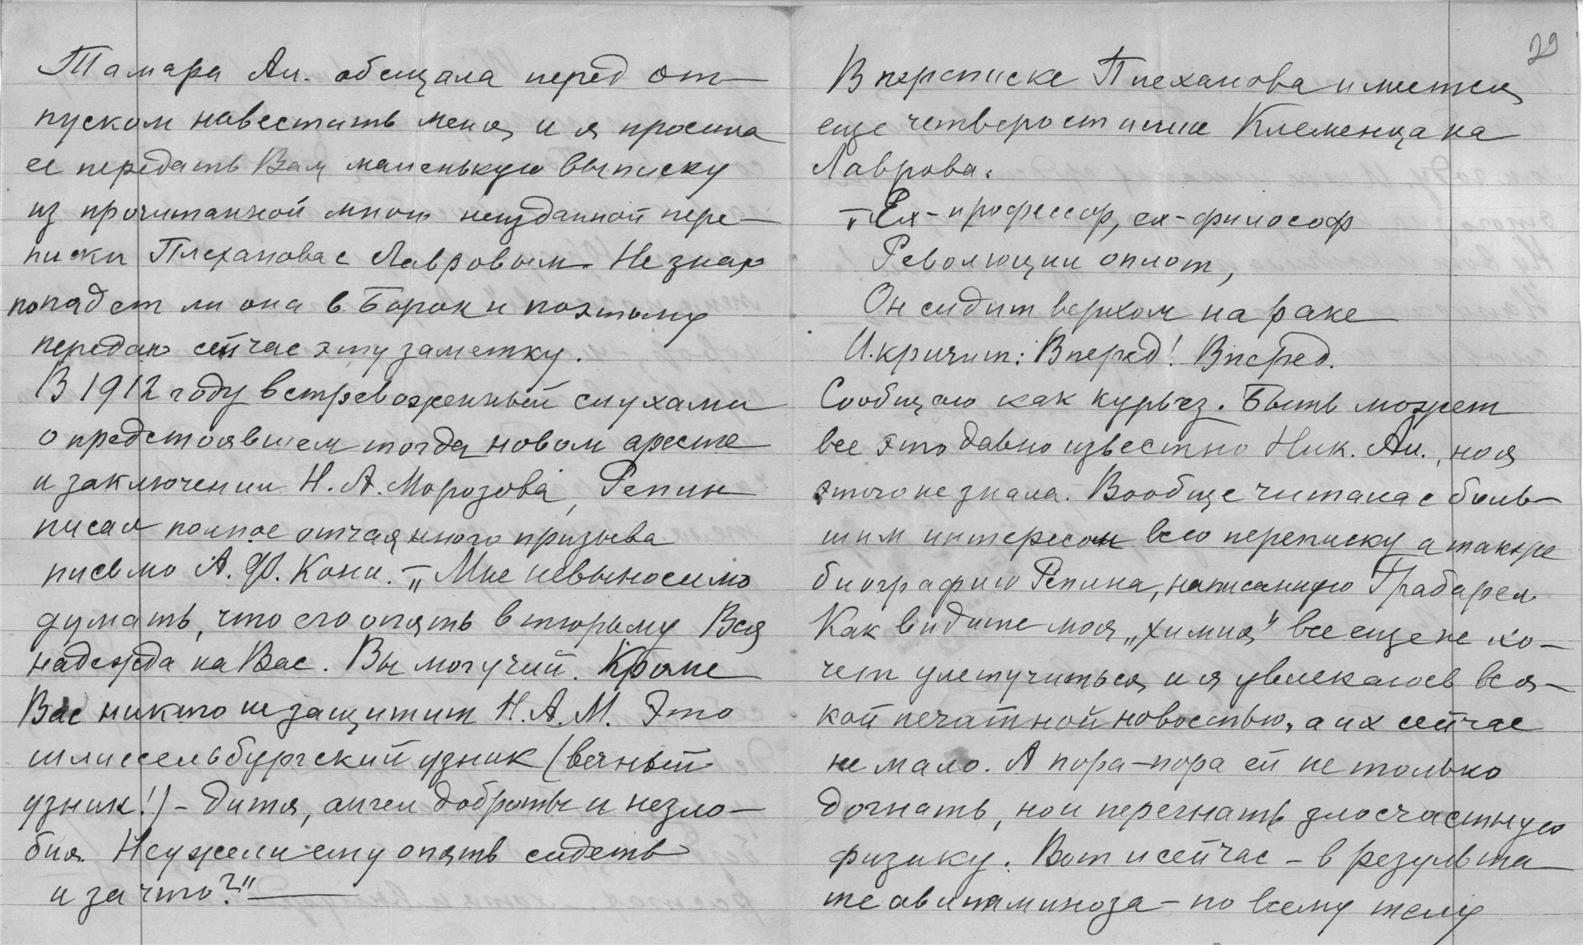 Тамара Ал. обещала перед от—
пуском навестить меня, и я просила
ее передать Вам маленькую выписку
из прочитанной мною неизданной пере—
писки Плеханова с Лавровым. Не знаю
попадет ли она в Борок и поэтому
передаю сейчас эту заметку.
В 1912 году встревоженный слухами
о предстоявшем тогда новом аресте
и заключении Н.А. Морозова, Репин
писал полное отчаянного призыва
письмо А.Ф. Кони. — „Мне невыносимо
думать, что его опять в тюрьму Вся
надежда на Вас. Вы могучий. Кроме
Вас никто не защитит Н.А.М. Это
шлиссельбургский узник (вечный
узник!) – дитя, ангел доброты и незло—
бия. Неужели ему опять сидеть
и за что?" —
29
В переписке Плеханова имеется
еще четверостишие Клеменца на
Лаврова.
„Ех-профессор, ех-философ
Революции оплот,
Он сидит верхом на раке
И кричит: Вперед! Вперед.
Сообщаю как курьез. Быть может
все это давно известно Ник. Ал., но я
этого не знала. Вообще читала с боль—
шим интересом всю переписку, а также
биографию Репина, написанную Грабарем.
Как видите моя „химия" все еще не хо—
чет улетучиться, и я увлекаюсь вся—
кой печатной новостью, а их сейчас
не мало. А пора-пора ей не только
догнать, но и перегнать злосчастную
физику. Вот и сейчас – в результа
те авитаминоза – по всему телу